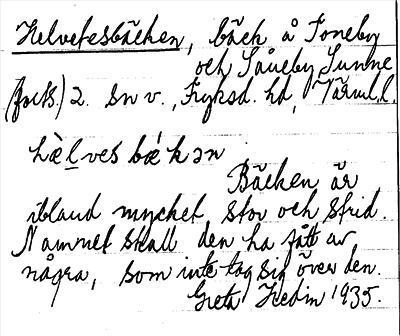 Helvetesbäcken, bäck å Toneby
och Såneby Sunne
(forts.) 2. sn v., Fryksd. hd, Värml.l.
hæ̀l̲ves bæ̀kən
Bäcken är
ibland mycket stor och strid.
Namnet skall den ha fått av
några, som inte tog sig över den.
Greta Hedin 1935.